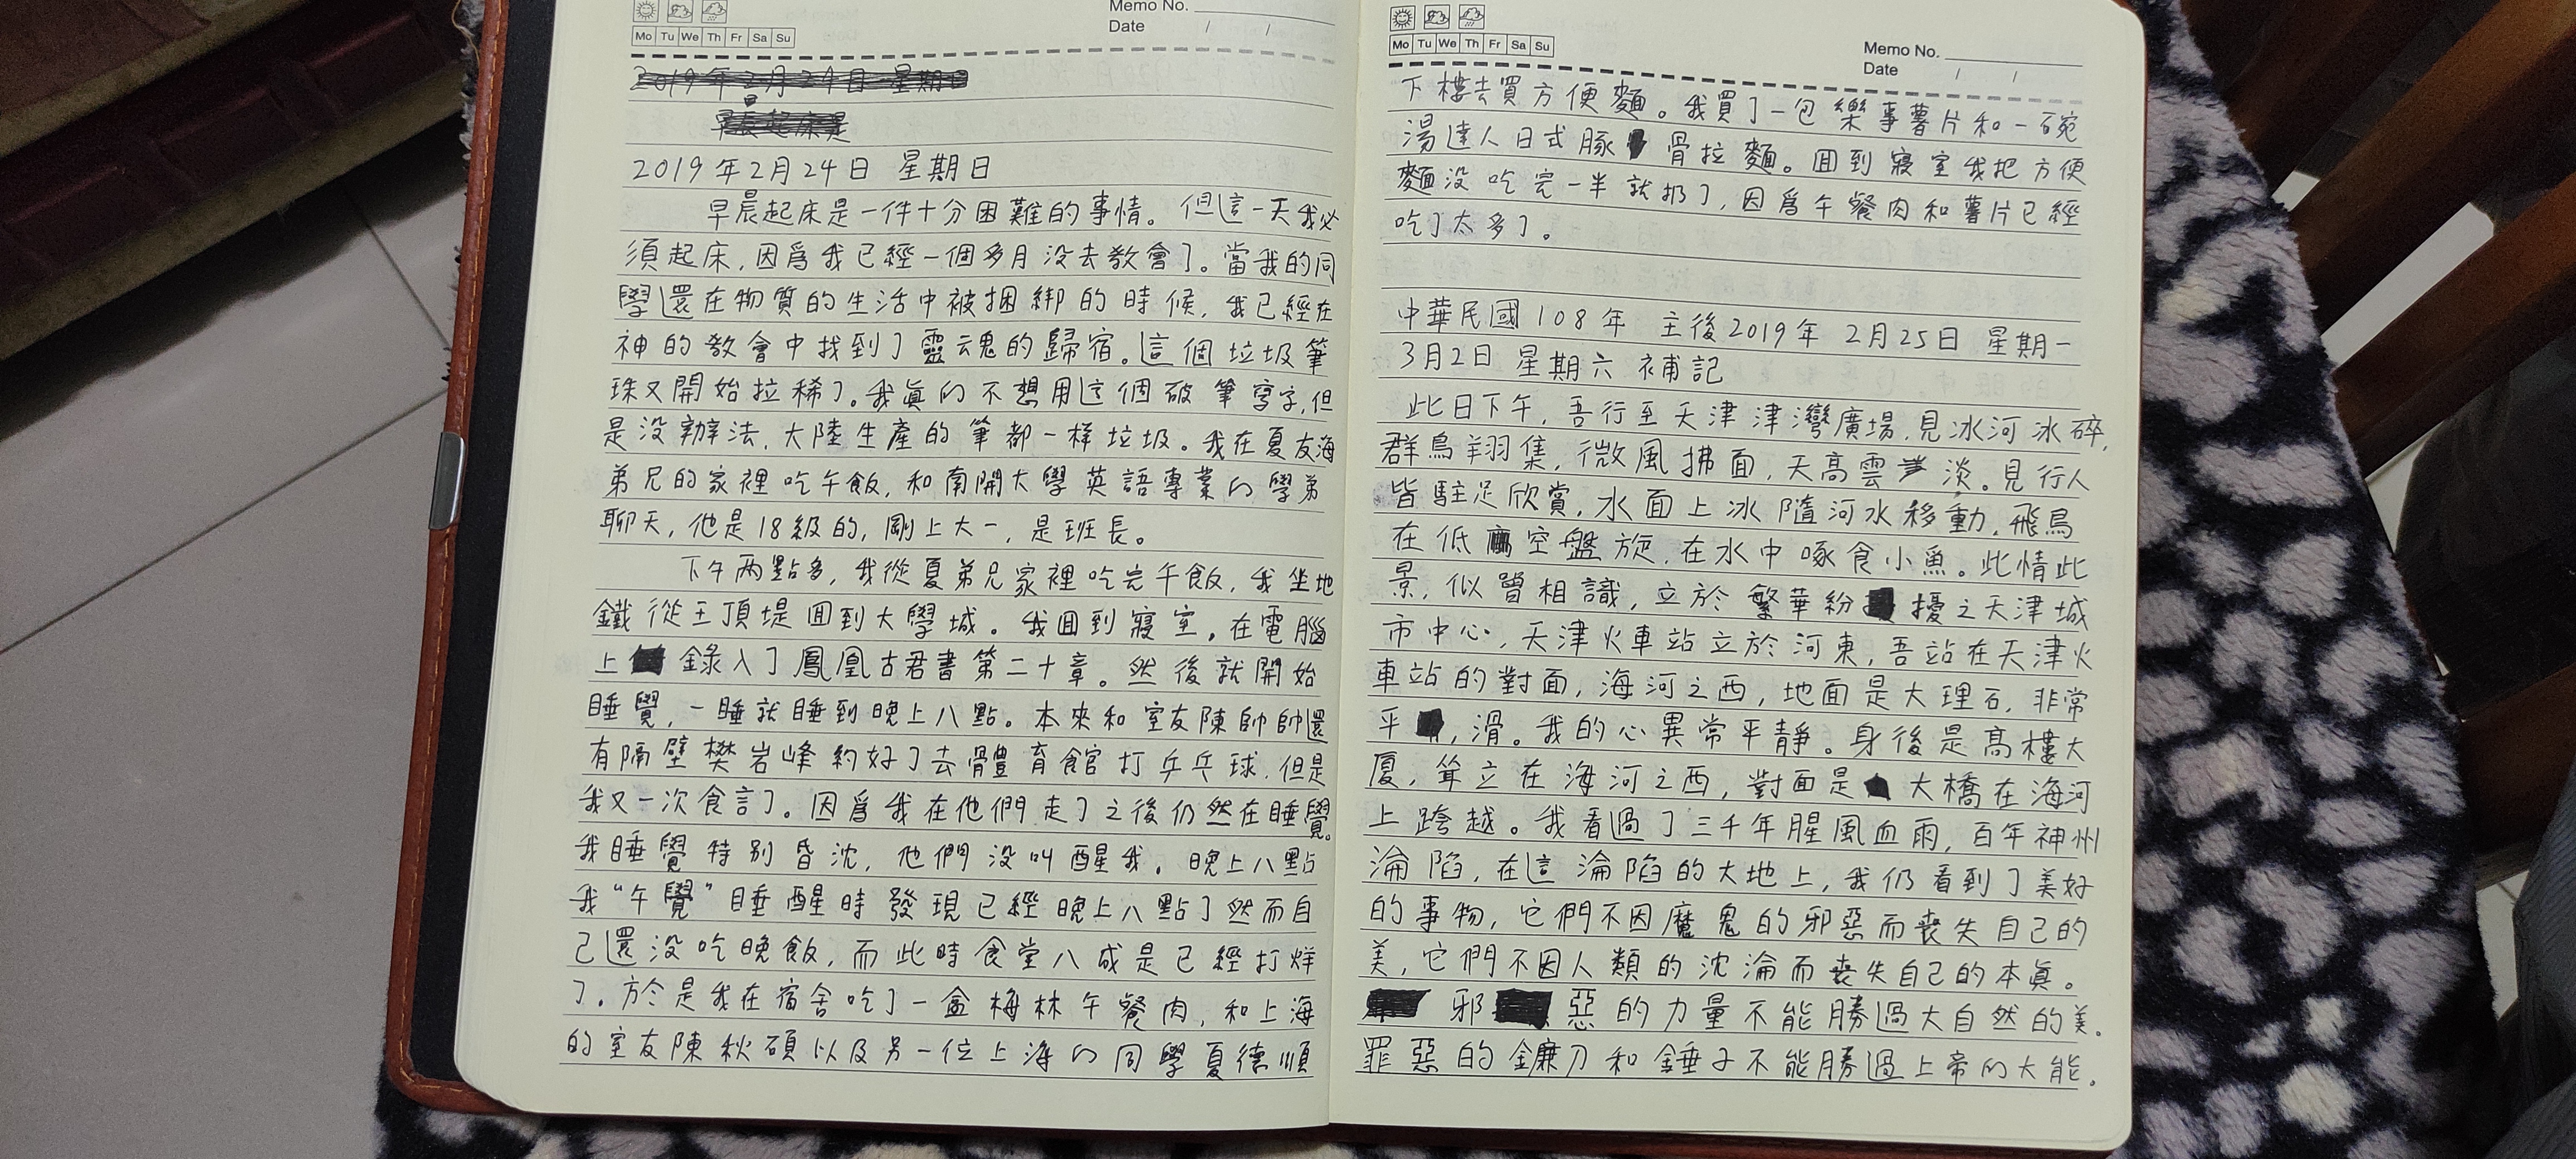 Memo No.
Mo Tu We Th Fr Sa Su
Date / /
2019年2月24日 星期日
早晨起床是
2019年2月24日 星期日
早晨起床是一件十分困難的事情。但這一天我必
須起床,因爲我已經一個多月没去教會了。當我的同
學還在物質的生活中被捆綁的時候,我已經在
神的教會中找到了靈魂的歸宿。這個垃圾筆
珠又開始拉稀了。我眞的不想用這個破筆寫字,但
是没辦法,大陸生產的筆都一样垃圾。我在夏友海
弟兄的家裡吃午飯,和南開大學英語專業的學弟
聊天,他是18級的,剛上大一,是班長。
下午两點多,我從夏弟兄家裡吃完午飯,我坐地
鐵從王頂堤囬到大學城。我囬到寢室,在電腦
上錄入了鳳凰古君書第二十章。然後就開始
睡覺,一睡就睡到晚上八點。本來和室友陳帥帥還
有隔壁樊岩峰約好了去體育館打乒乓球,但是
我又一次食言了。因爲我在他們走了之後仍然在睡覺。
我睡覺特别昏沈,他們没叫醒我。晚上八點
我“午覺”睡醒時發現已經晚上八點了然而自
己還没吃晚飯,而此時食堂八成是已經打烊
了。於是我在宿舍吃了一盒梅林午餐肉,和上海
的室友陳秋碩以及另一位上海的同學夏德順
Mo Tu We Th Fr Sa Su
Memo No.
Date / /
下樓去買方便麵。我買了一包樂事薯片和一碗
湯達人日式豚骨拉麵。囬到寢室我把方便
麵没吃完一半就扔了,因爲午餐肉和薯片已經
吃了太多了。
中華民國108年 主後2019年 2月25日 星期一
3月2日 星期六 補記
此日下午,吾行至天津津灣廣場,見冰河冰碎,
群鳥翔集,微風拂面,天高雲淡。見行人
皆駐足欣賞,水面上冰隨河水移動,飛鳥
在低空盤旋,在水中啄食小魚。此情此
景,似曾相識,立於繁華紛擾之天津城
市中心,天津火車站立於河東,吾站在天津火
車站的對面,海河之西,地面是大理石,非常
平,滑。我的心異常平靜。身後是高樓大
厦,耸立在海河之西,對面是大橋在海河
上跨越。我看過了三千年腥風血雨,百年神州
淪陷,在這淪陷的大地上,我仍看到了美好
的事物,它們不因魔鬼的邪惡而喪失自己的
美,它們不因人類的沈淪而喪失自己的本眞。
邪惡的力量不能勝過大自然的美。
罪惡的鐮刀和錘子不能勝過上帝的大能。